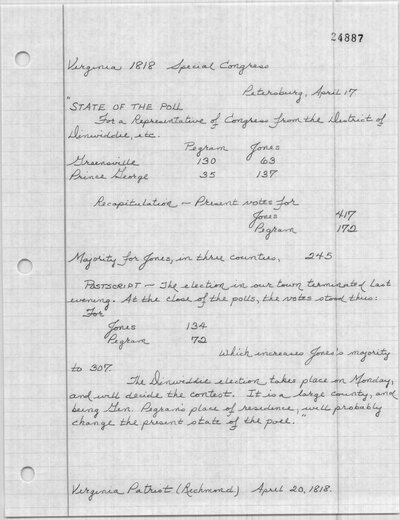 24887
Virginia 1818 Special Congress
Petersburg, April 17
"STATE OF THE POLL
For a Representative of Congress from the District of
Dinwiddie, etc.
Pegram Jones
Greensville 130 63
Prince George 35 137
Recapitulation — Present votes for
Jones 417
Pegram 172
Majority for Jones, in three counties, 245
POSTSCRIPT — The election in our town terminated last
evening. At the close of the polls, the votes stood thus:
For
Jones 134
Pegram 72
Which increases Jones's majority
to 307.
The Dinwiddie election takes place on Monday,
and will decide the contest. It is a large county, and
being Gen. Pegram's place of residence, will probably
change the present state of the poll."
Virginia Patriot (Richmond) April 20, 1818.